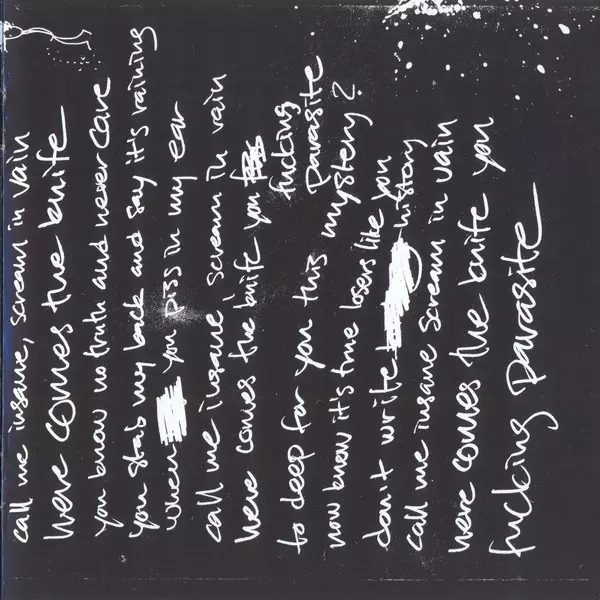 call me insane, scream in vain
here comes the knife
you know no truth and never care
you stab my back and say it's raining
when you piss in my ear
call me insane scream in vain
here comes the knife you
fucking parasite
to deep for you this mystery?
now know it's true losers like you
don't write history
call me insane scream in vain
here comes the knife you
fucking parasite